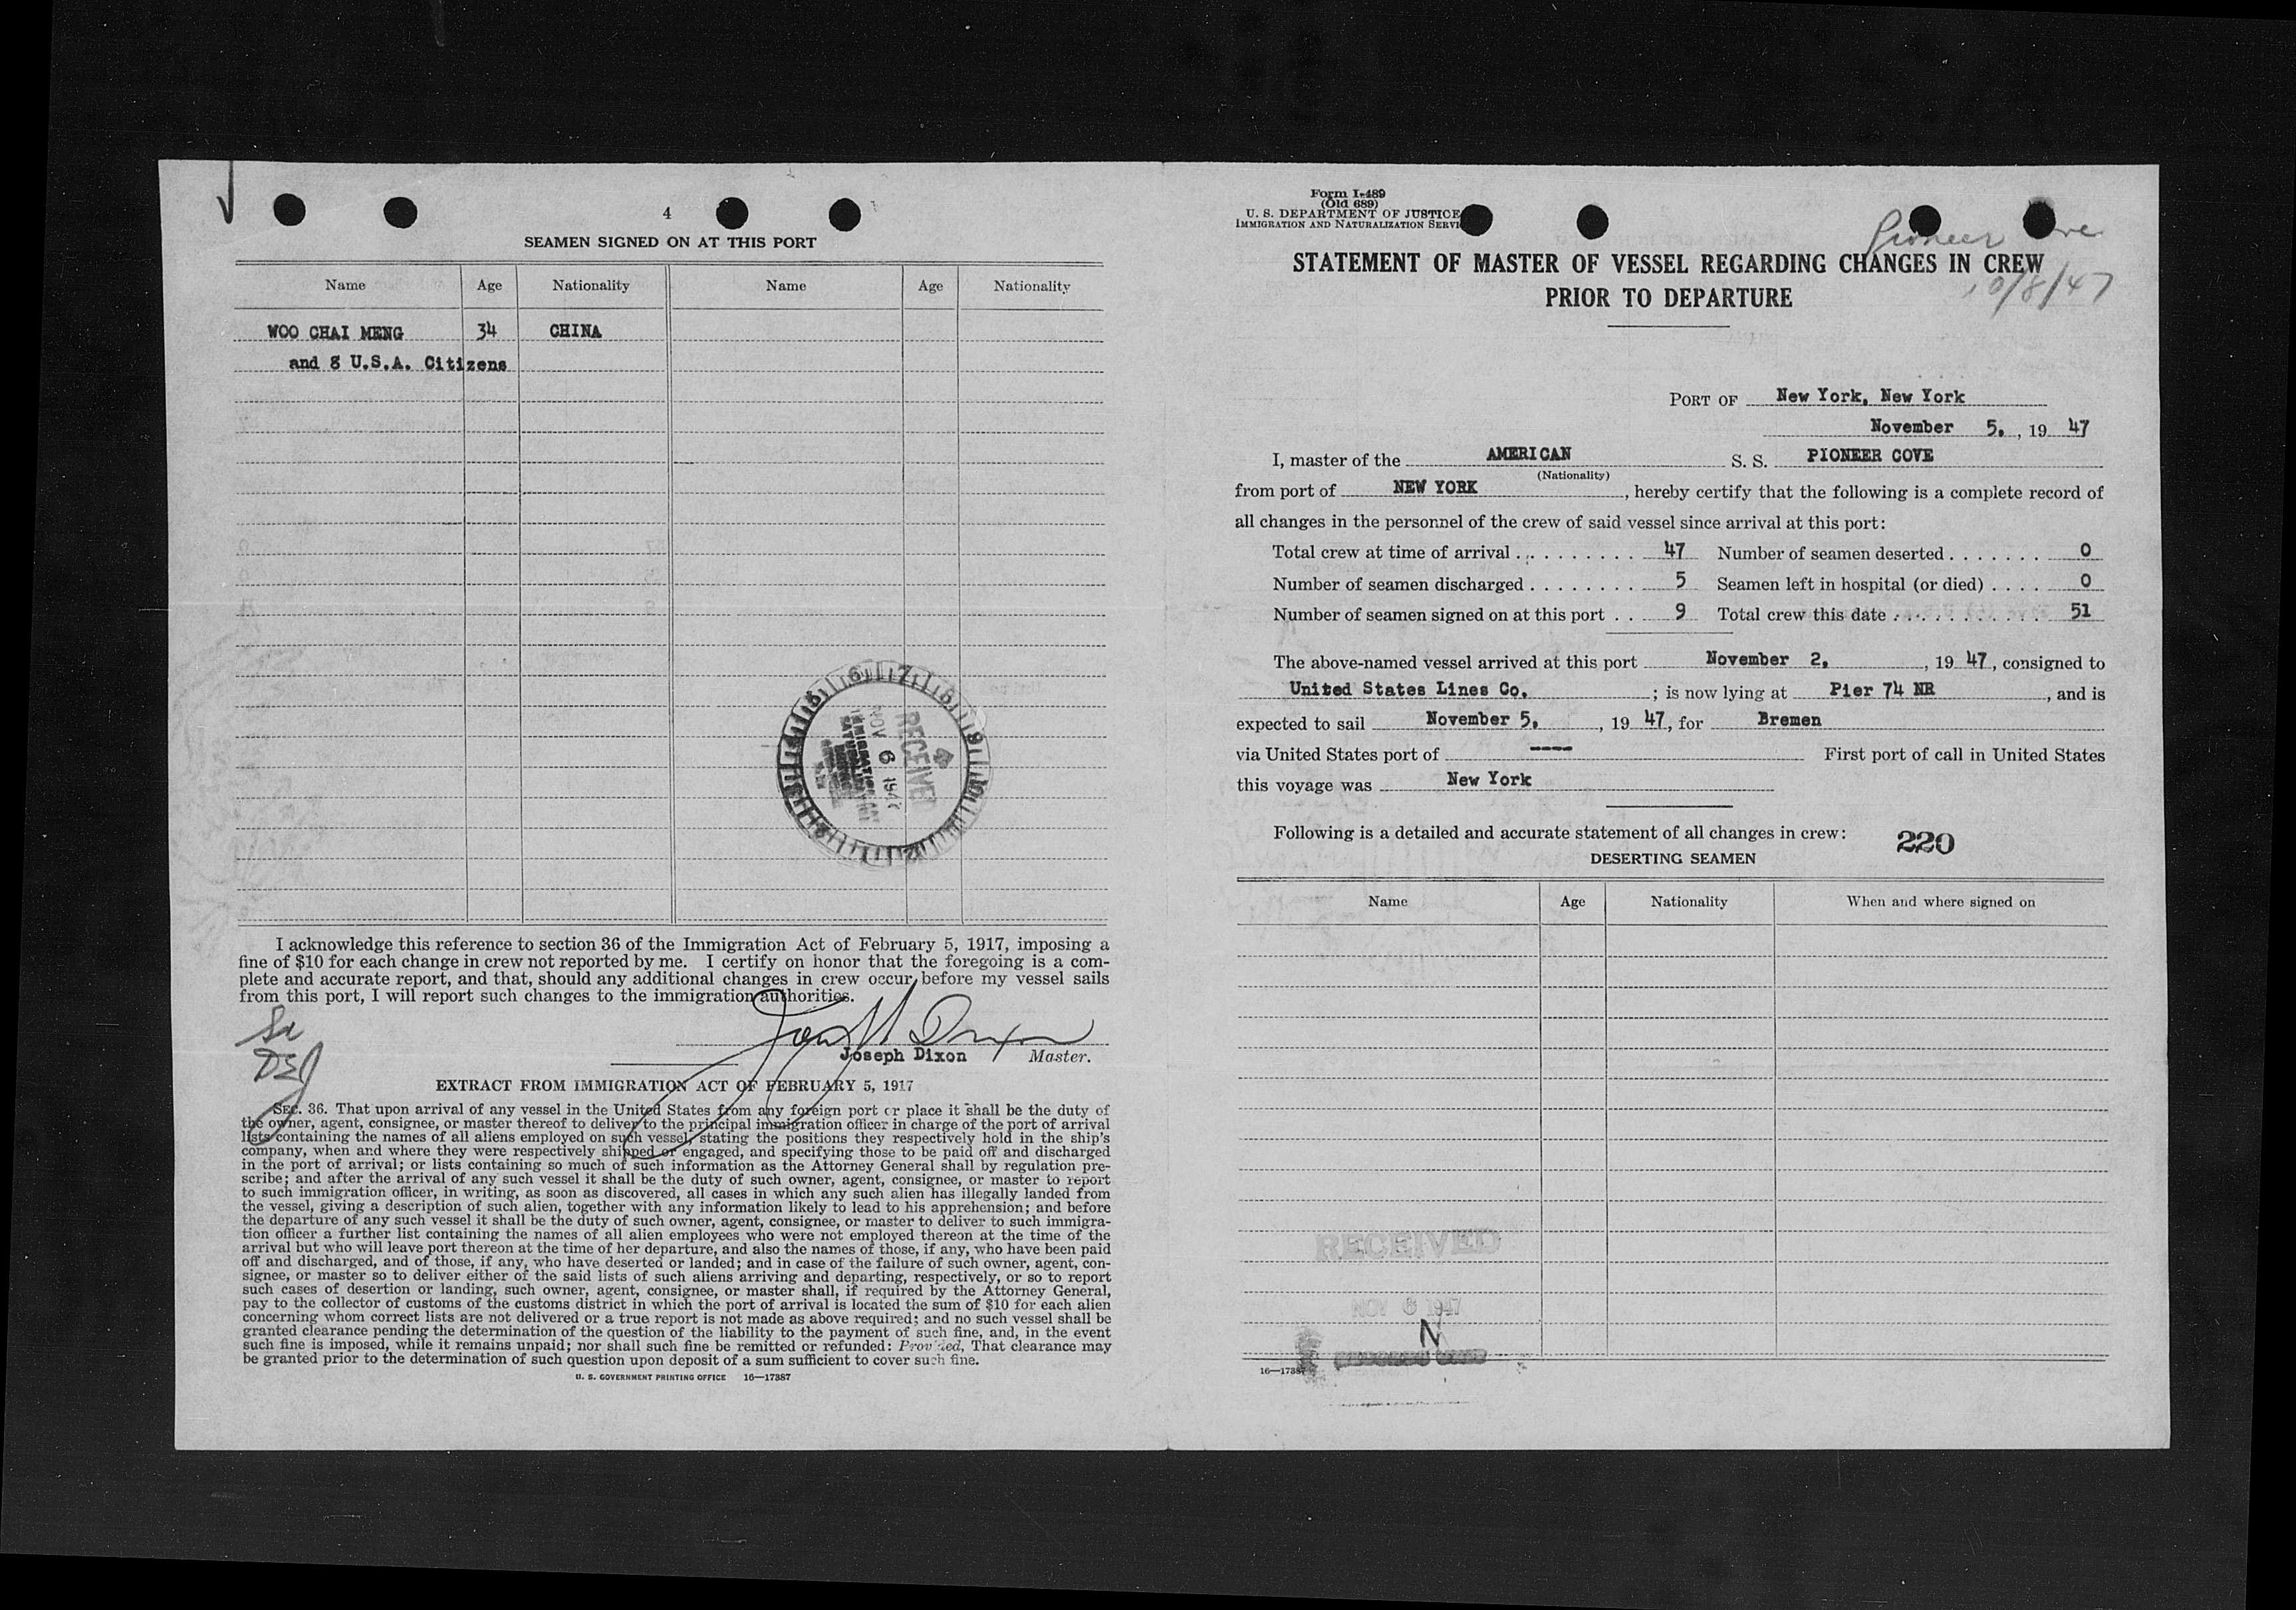 4
SEAMEN SIGNED ON AT THIS PORT
Name Age Nationality Name Age Nationality
WOO CHAI MENG 34 CHINA
and 8 U.S.A. Citizens
RECEIVED
NOV 6 194
I acknowledge this reference to section 36 of the Immigration Act of February 5, 1917, imposing a
fine of $10 for each change in crew not reported by me. I certify on honor that the foregoing is a com-
plete and accurate report, and that, should any additional changes in crew occur before my vessel sails
from this port, I will report such changes to the immigration authorities.
Joseph Dixon Master.
EXTRACT FROM IMMIGRATION ACT OF FEBRUARY 5, 1917
SEC. 36. That upon arrival of any vessel in the United States from any foreign port or place it shall be the duty of
the owner, agent, consignee, or master thereof to deliver to the principal immigration officer in charge of the port of arrival
lists containing the names of all aliens employed on such vessel, stating the positions they respectively hold in the ship's
company, when and where they were respectively shipped or engaged, and specifying those to be paid off and discharged
in the port of arrival; or lists containing so much of such information as the Attorney General shall by regulation pre-
scribe; and after the arrival of any such vessel it shall be the duty of such owner, agent, consignee, or master to report
to such immigration officer, in writing, as soon as discovered, all cases in which any such alien has illegally landed from
the vessel, giving a description of such alien, together with any information likely to lead to his apprehension; and before
the departure of any such vessel it shall be the duty of such owner, agent, consignee, or master to deliver to such immigra-
tion officer a further list containing the names of all alien employees who were not employed thereon at the time of the
arrival but who will leave port thereon at the time of her departure, and also the names of those, if any, who have been paid
off and discharged, and of those, if any, who have deserted or landed; and in case of the failure of such owner, agent, con-
signee, or master so to deliver either of the said lists of such aliens arriving and departing, respectively, or so to report
such cases of desertion or landing, such owner, agent, consignee, or master shall, if required by the Attorney General,
pay to the collector of customs of the customs district in which the port of arrival is located the sum of $10 for each alien
concerning whom correct lists are not delivered or a true report is not made as above required; and no such vessel shall be
granted clearance pending the determination of the question of the liability to the payment of such fine, and, in the event
such fine is imposed, while it remains unpaid; nor shall such fine be remitted or refunded: Provided, That clearance may
be granted prior to the determination of such question upon deposit of a sum sufficient to cover such fine.
U. S. GOVERNMENT PRINTING OFFICE 16—17387
Form I-489
(Old 689)
U. S. DEPARTMENT OF JUSTICE
IMMIGRATION AND NATURALIZATION SERVI
Pioneer ve
10/8/47
STATEMENT OF MASTER OF VESSEL REGARDING CHANGES IN CREW
PRIOR TO DEPARTURE
PORT OF New York, New York
November 5. , 19 47
I, master of the AMERICAN S. S. PIONEER COVE
(Nationality)
from port of NEW YORK , hereby certify that the following is a complete record of
all changes in the personnel of the crew of said vessel since arrival at this port:
Total crew at time of arrival . . . . . . . . . . 47 Number of seamen deserted . . . . . . . 0
Number of seamen discharged . . . . . . . . 5 Seamen left in hospital (or died) . . . . 0
Number of seamen signed on at this port . . 9 Total crew this date . . . . . . . . . . . 51
The above-named vessel arrived at this port November 2. , 19 47, consigned to
United States Lines Co. ; is now lying at Pier 74 NR , and is
expected to sail November 5. , 19 47, for Bremen
via United States port of ---- First port of call in United States
this voyage was New York
Following is a detailed and accurate statement of all changes in crew: 220
DESERTING SEAMEN
Name Age Nationality When and where signed on
RECEIVED
NOV 6 1947
N
16—1738